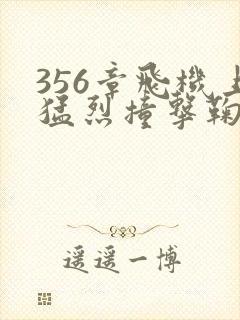 356章飛機上
猛烈撞擊鞠
遥遥一博